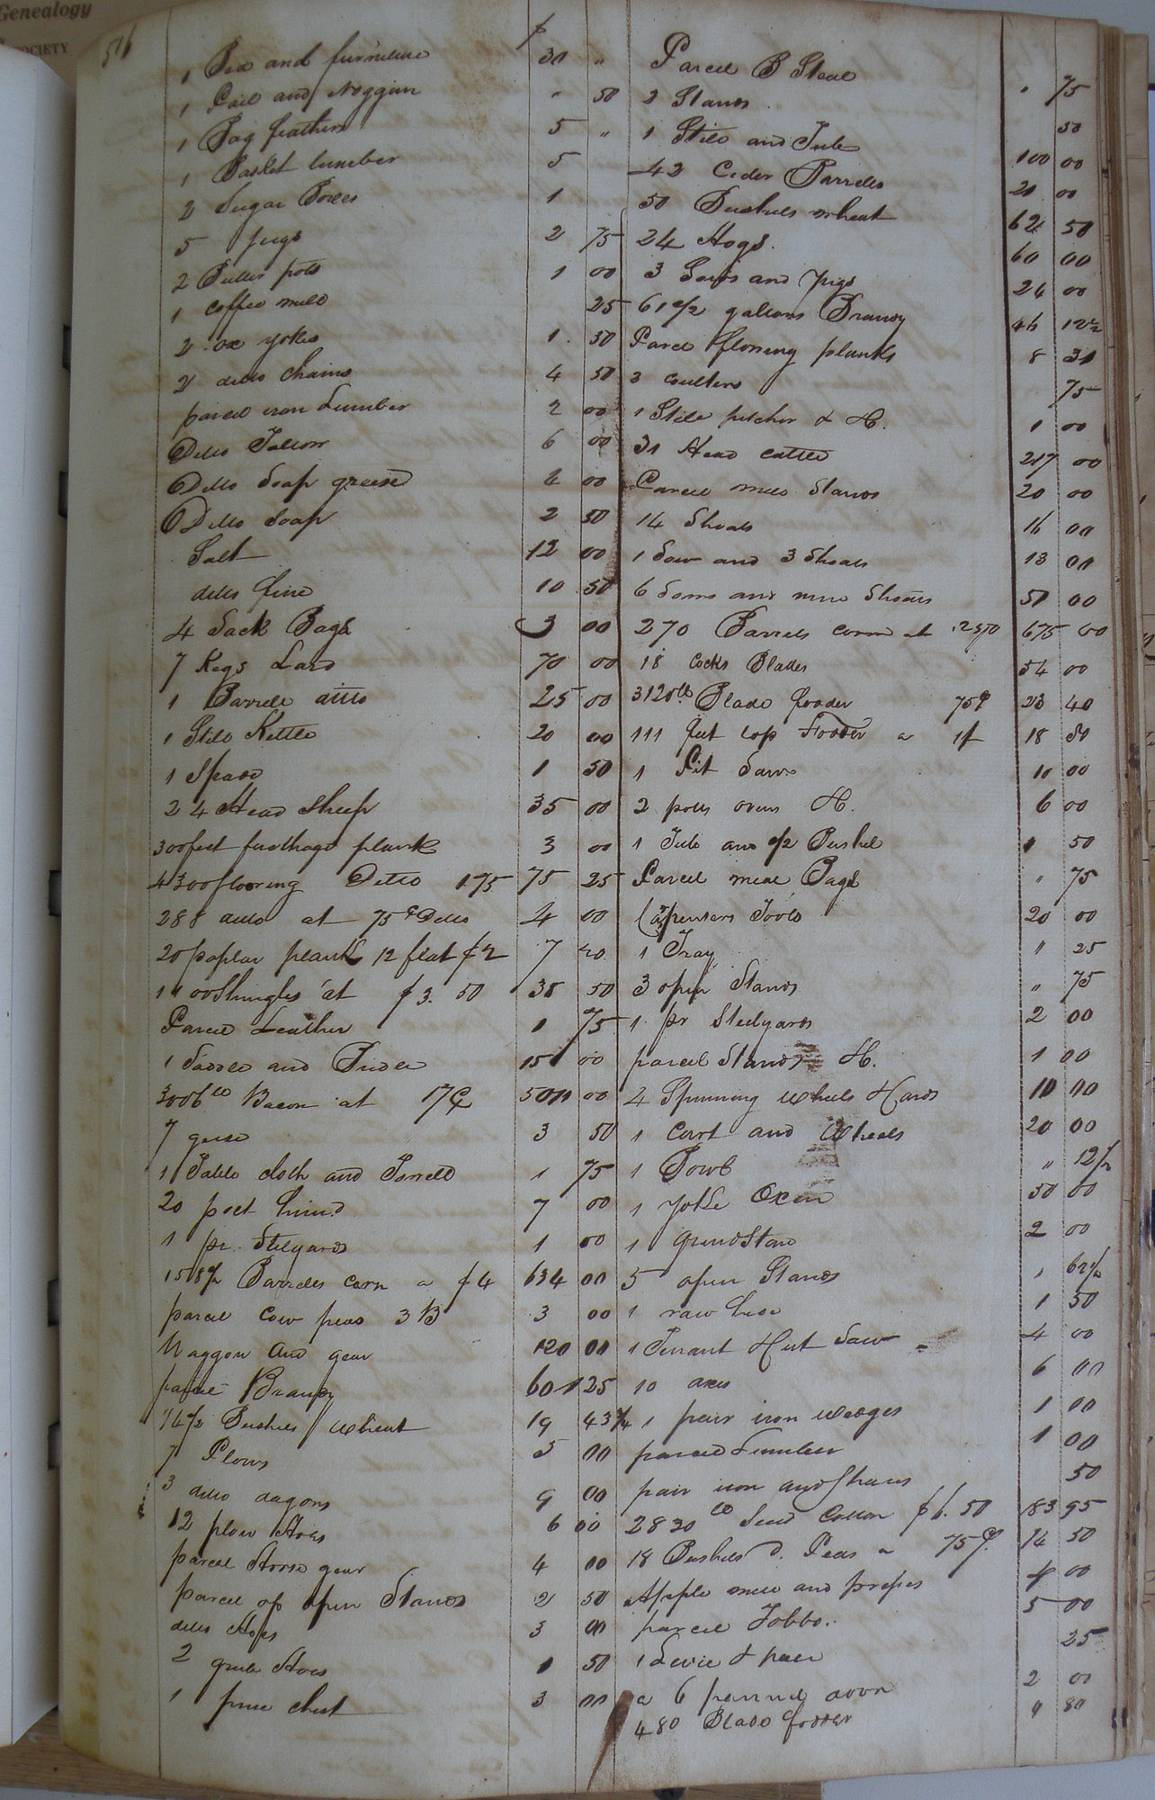 Genealogy
SOCIETY
516
$
1 Bed and furniture 30 "
1 Pail and Noggin " 50
1 Bag feathers 5 "
1 Basket lumber 5
2 Sugar Boxes 1
5 jugs 2 75
2 Butter pots 1 00
1 coffee mill 25
2 ox yokes 1 50
2 ditto chains 4 50
parcel iron Lumber 2 00
Ditto Tallow 6 00
Ditto Soap greese 4 00
Ditto Soap 2 50
Salt 12 00
ditto fine 10 50
4 Sack Bags 3 00
7 Kegs Lard 70 00
1 Barrele ditto 25 00
1 Still Kettle 20 00
1 Spade 1 50
24 Head Sheep 35 00
300 feet plank 3 00
4300 flooring Ditto 175 75 25
288 ditto at 75 ¢ Ditto 4 00
20 poplar plank 12 flat $2 7 20
1100 Shingles at $3. 50 38 50
Parcel Leather 1 75
1 Saddle and Bridle 15 00
3006 lb Bacon at 17 ¢ 501 00
7 geese 3 50
1 Table cloth and 1 75
20 7 00
1 pr. Stilyards 1 00
158 1/2 Barreles corn a $4 634 00
parcel Cow peas 3 B 3 00
Waggon and gear 120 00
parcel Brandy 601 25
Bushels wheat 19 43 3/4
7 Plows 5 00
3 ditto dagons 9 00
12 plow Hoes 6 00
parcel Horse gear 4 00
parcel of open Stands 2 50
ditto Hops 3 00
2 grub Hoes 1 50
1 pine chest 3 00
Parcel B Steal " 75
2 Stands 50
1 Still and Tub 100 00
42 Cider Barreles 21 00
50 Bushels wheat 62 50
24 Hogs. 60 00
3 Sows and pigs 24 00
61 1/2 gallons Brandy 46 12 1/2
Parcel flooring planks 8 31
3 coulters 75
1 Stile pitcher & H. 1 00
31 Head cattle 217 00
Parcel Stands 20 00
14 Shoats 16 00
1 Sow and 3 Shoats 13 00
6 Sows and nine Shoats 50 00
270 Barrels corn at 2,50 675 00
18 Cocks Blades 54 00
3120 lb Blade fodder 75 ¢ 23 40
111 feet top Fodder a 18
1 Pit Saw 10 00
2 potts ovens H. 6 00
1 Tub and 1/2 Bushel 1 50
Parcel meal Bags " 75
Carpenters Tools 20 00
1 Tray 1 25
3 open Stands " 75
1 pr Stilyards 2 00
parcel Stands H. 1 00
4 Spinning wheels 10 00
1 Cart and Wheels 20 00
1 Bowl " 12 1/2
1 yoke Oxen 50 00
1 grindstone 2 00
5 open Stands " 62 1/2
1 raw hide 1 50
1 Tennant Hut Saw 4 00
10 axes 6 00
1 pair iron wedges 1 00
parcel Lumber 1 00
pair iron 50
2830 lb Seed Cotton $6.50 183 95
18 Bushels d. Peas a 75 ¢. 14 50
Apple mill and 4 00
parcel Tobbo. 5 00
1 & pail 25
a 6 pannel door 2 00
480 Blade fodder 4 80